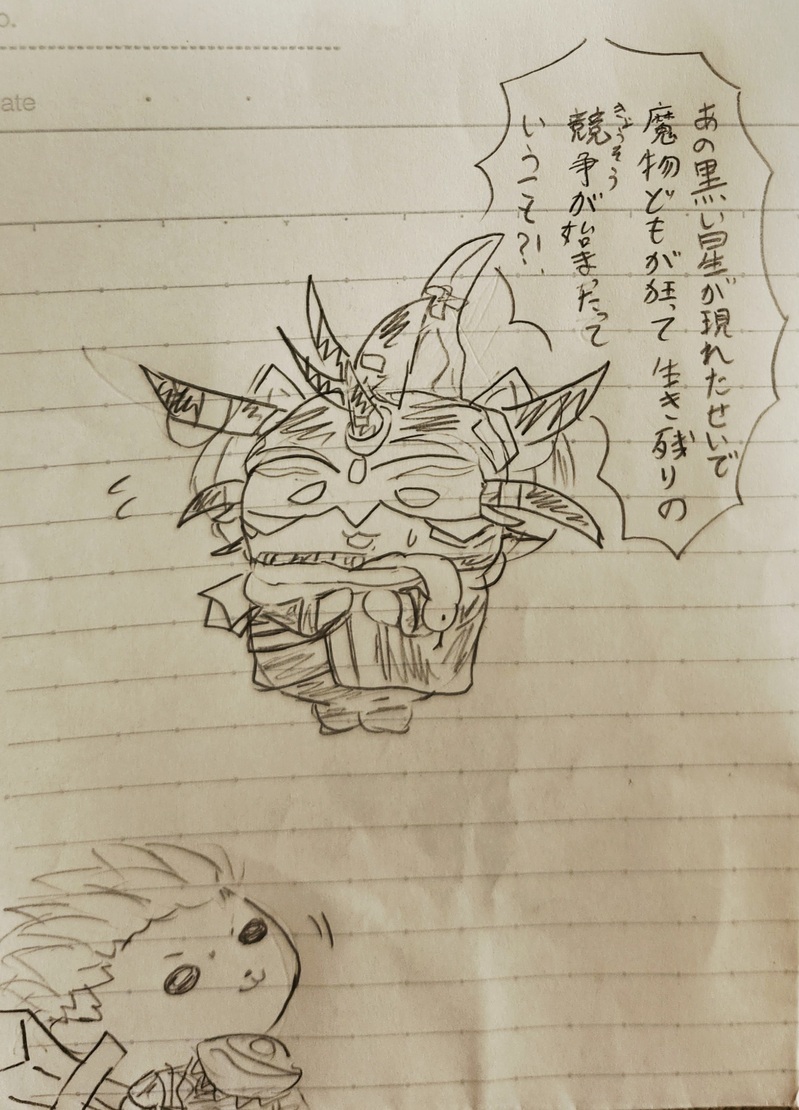 o.
ate
あの黒い星が現れたせいで
魔物どもが狂って生き残りの
競争が始まったって
きょうそう
いうーそ?!